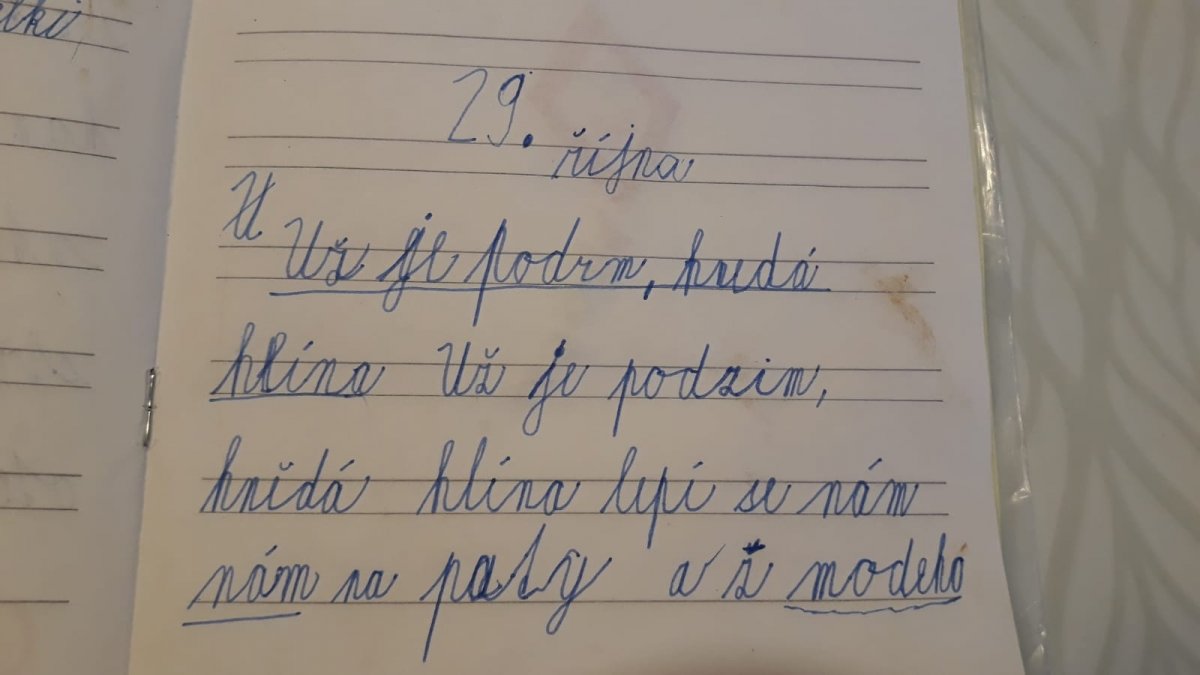 elki
29. října
U Už je podzm, hnedá
hlína Už je podzim,
hnědá hlína lepí se nám
nám na paty a ž modehó